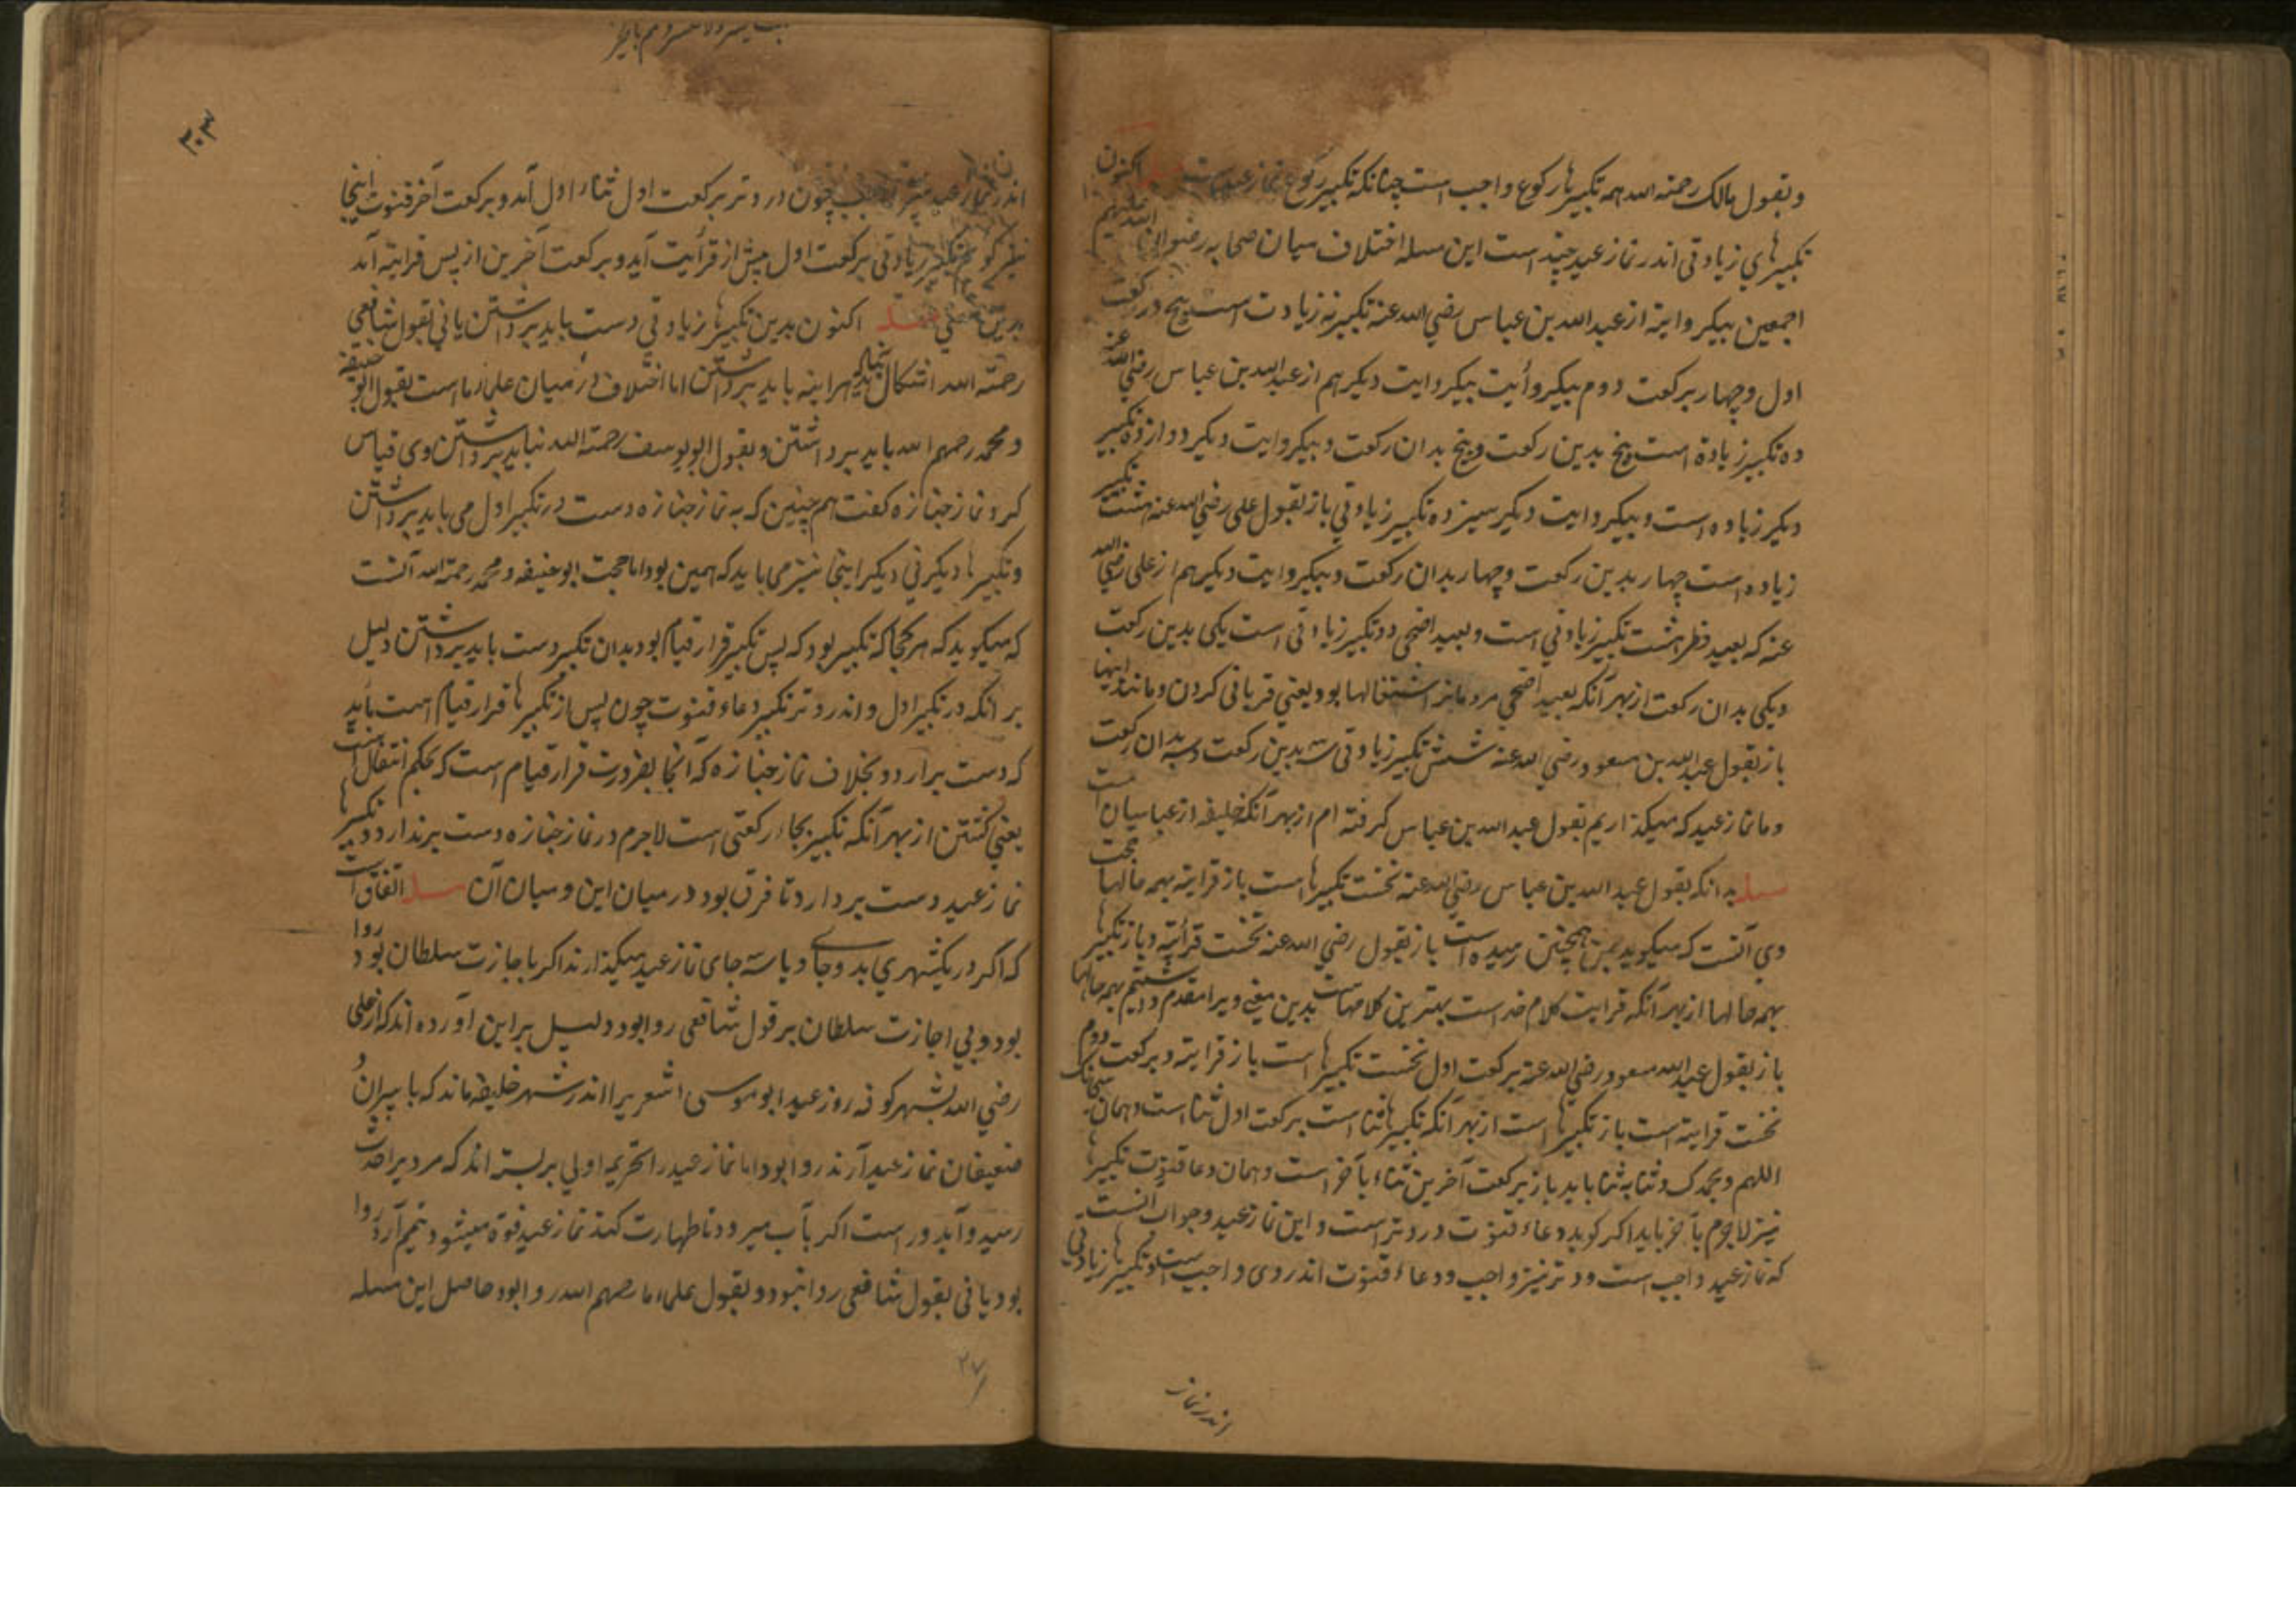 وبقول مالک رحمته الله همه تکبیرها رکوع واجب است چنانکه تکبیر رکوع نماز عید است اکنون
تکبیرهای زیادتی اندر نماز عید چند است این مسله اختلاف میان صحابه رضوان الله علیهم
اجمعین بیکروایة از عبد الله بن عباس رضی الله عنه تکبیر نه زیادت است پنج در رکعت
اول و چهار برکعت دوم بیکروایت دیکر هم از عبد الله بن عباس رضی الله عنه
ده تکبیر زیادة است پنج بدین رکعت و پنج بدان رکعت و بیکروایت دیکر دوازده تکبیر
دیکر زیاده است و بیکروایت دیکر سیزده تکبیر زیادتی باز بقول علی رضی الله عنه هشت تکبیر
زیاده است چهار بدین رکعت و چهار بدان رکعت و بیکروایت دیکر هم از علی رضی الله
عنه که بعید فطر هشت تکبیر زیادتی است و بعید اضحی دو تکبیر زیادتی است یکی بدین رکعت
و یکی بدان رکعت از بهر آنکه بعید اضحی مردمانرا اشتغالها بود یعنی قربانی کردن و مانند اینها
باز بقول عبد الله بن مسعود رضی الله عنه شش تکبیر زیادتی سه بدین رکعت و سه بدان رکعت
و ما نماز عید که میکذاریم بقول عبد الله بن عباس کرفته ام از بهر آنکه خلیفه از عباسیان است
مسله بدانکه بقول عبد الله بن عباس رضی الله عنه نخست تکبیرها است باز قرایة بهمه حالها حجت
وی آنست که میکوید بمن همچنین رسیده است باز بقول رضی الله عنه نخست قرأیة و باز تکبیرها
بهمه حالها از بهر آنکه قرایت کلام خداست بهترین کلامهاست بدین معنی ویرا مقدم داشتیم بهمه حالها
باز بقول عبد الله مسعود رضی الله عنه برکعت اول نخست تکبیرها است باز قرایة و برکعت دوم
نخست قرایة است باز تکبیرها است از بهر آنکه تکبیرها ثنا است برکعت اول ثنا است و همان سبحانک
اللهم وبحمدک و ثنا به ثنا باید باز برکعت آخرین ثناء بآخر است و همان دعا قنوت تکبیرها
نیز لاجرم بآخر باید اکر کوید دعاء قنوت در وتر است و این نماز عید و جواب آنست
که نماز عید واجب است و وتر نیز واجب و دعاء قنوت اندر وی واجب است و تکبیرها زیادتی
اندر نماز
۳۰۳
اندر نماز عید چون در وتر برکعت اول ثناء اول آمد و برکعت آخر قنوت اینجا
نیز کویم تکبیر زیادتی برکعت اول پیش از قرأیت آید و برکعت آخرین از پس قرایة آمد
بدین معنی مسله اکنون بدین تکبیرها زیادتی دست باید برداشتن یا نی بقول شافعی
رحمته الله اشکال نیاید هراینه باید برداشتن اما اختلاف در میان علماء ما است بقول ابو حنیفه
و محمد رحمهم الله باید برداشتن و بقول ابو یوسف رحمته الله نباید برداشتن وی قیاس
کرد نماز جنازه کفت هم چنین که به نماز جنازه دست در تکبیر اول می باید برداشتن
و تکبیرها دیکر نی دیکر اینجا نیز می باید که همین بود اما حجت ابو حنیفه و محمد رحمته الله آنست
که میکوید که هر کجا که تکبیر بود که پس تکبیر قرار قیام بود بدان تکبیر دست باید برداشتن دلیل
بر آنکه در تکبیر اول و اندر وتر تکبیر دعاء قنوت چون پس از تکبیرها قرار قیام است باید
که دست بر آرد و بخلاف نماز جنازه که آنجا بضرورت قرار قیام است که بحکم انتقال است
یعنی کشتن از بهر آنکه تکبیر بجاء رکعتی است لاجرم در نماز جنازه دست برندارد و بر تکبیرها
نماز عید دست بردارد تا فرق بود در میان این و میان آن مسله اتفاق است
که اکر در یکشهری بدو جای و یا سه جای نماز عید میکذارند اکر باجازت سلطان بود روا
بود و بی اجازت سلطان بر قول شافعی روا بود و دلیل براین آورده اند که از علی
رضی الله بشهر کوفه روز عید ابو موسی اشعریرا اندر شهر خلیفه ماند که با پیران و
ضعیفان نماز عید آرند روا بود اما نماز عید را تحریمه اولی بر بسته اند که مردیرا حدث
رسید و آبدور است اکر بآب میرود تا طهارت کند نماز عید فوة میشود تیمم آرد روا
بود یا نی بقول شافعی روا نبود و بقول علماء ما رحمهم الله روا بود حاصل این مسله
۲۷